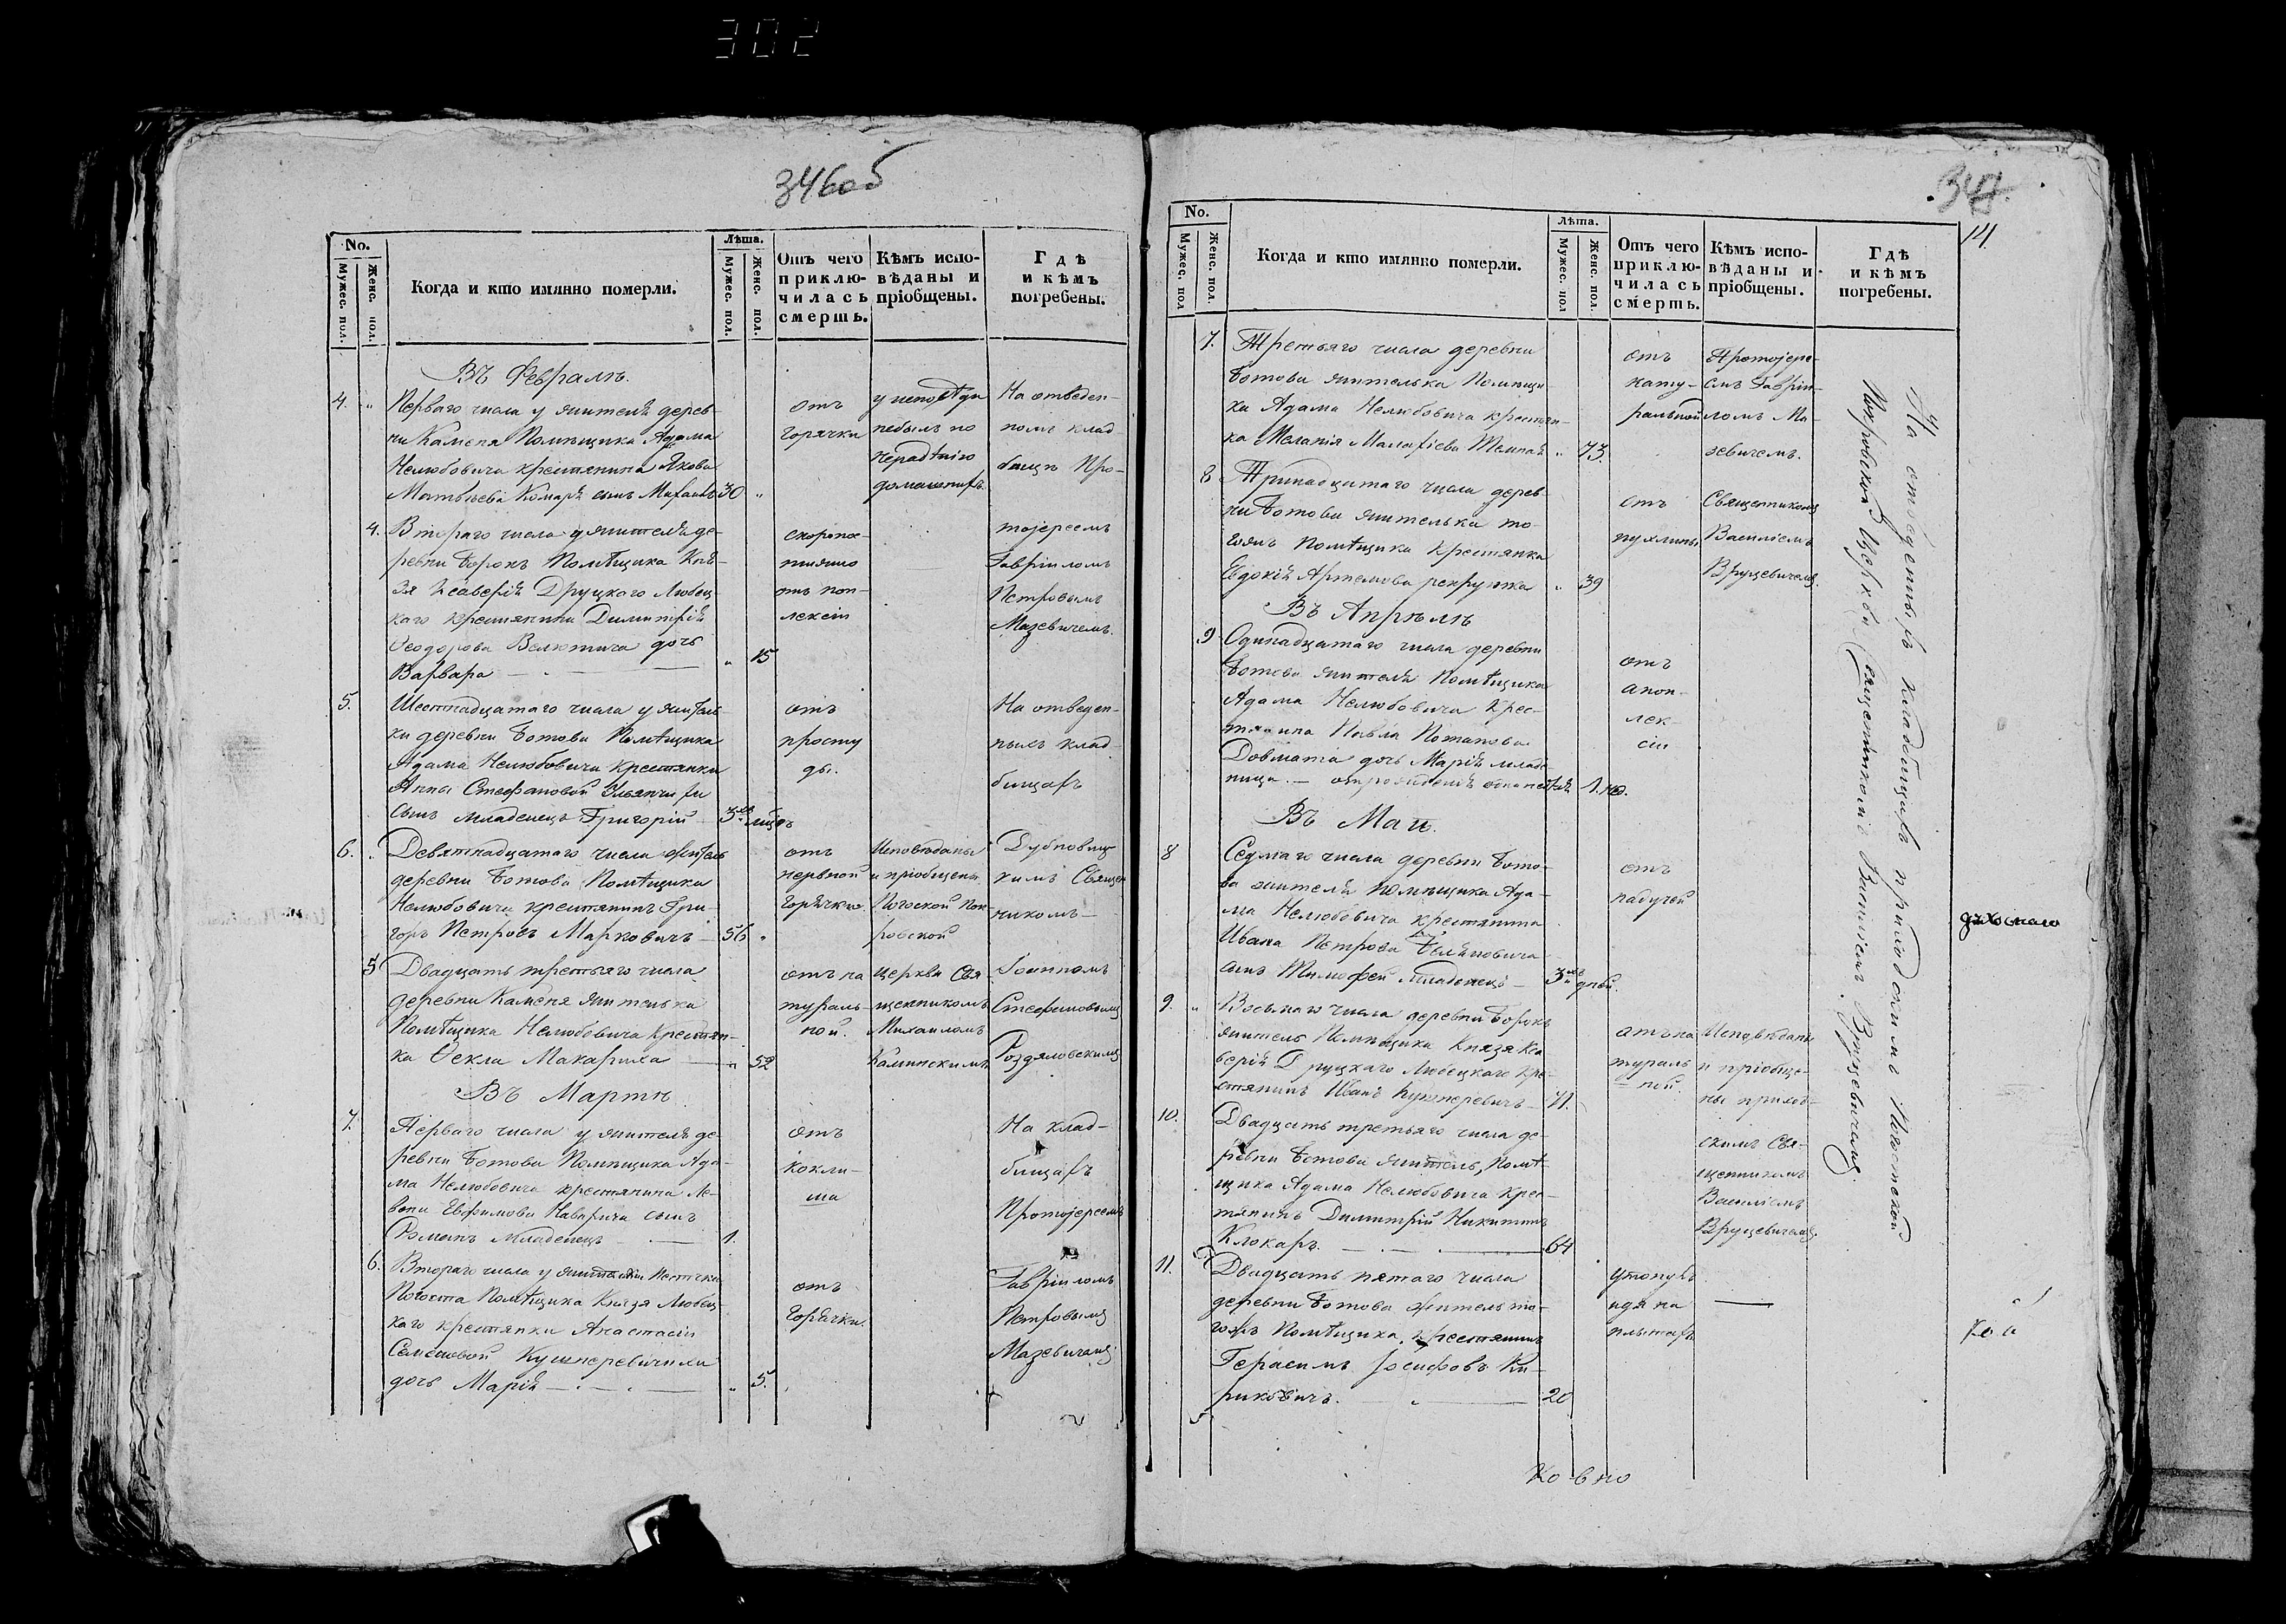 302
346об
No.
Мужес. пол.
Женс. пол.
Когда и кто имянно померли.
Лѣта.
Мужес. пол.
Женс. пол.
Отъ чего приклю-чилась смерть.
Кѣмъ испо-вѣданы и пріобщены.
Гдѣ и кѣмъ погребены.
Въ Февралѣ.
4. „ Перваго числа у жителя дерев-
ни Каменя Помѣщика Адама
Нелюбовича крестянина Якова
Матвѣева Комаря сынъ 30 „
отъ
горячки
у исповѣди
небылъ по
домашнихъ
На отведен-
номъ клад-
бищѣ Про-
4. Втораго числа у жителя де-
ревни Борокъ Помѣщика Кня-
зя Ксаверія Друцкаго Любец-
каго крестянина Димитрія
Ѳеодорова Велютича дочь
Варвара „ 15
скоропос-
тижно
отъ поп-
лексіи
тоіереемъ
Гавріиломъ
Петровымъ
Мазевичемъ.
5. Шестнадцатаго числа у житель-
ки деревни Ботова Помѣщика
Адама Нелюбовича крестянки
Анны Стефановой
сынъ младенецъ Григорій 3
отъ
просту
ды.
На отведен-
ныхъ клад-
бищахъ
6. „ Девятнадцатаго числа житель
деревни Ботова Помѣщика
Нелюбовича крестянинъ Гри-
горъ Петровъ Марковичъ 56 „
отъ
нервной
горячки.
Исповѣданы
и пріобщены
Погоской Пок-
ровской
Дубновиц-
кимъ Священ
никомъ
5 Двадцать третьяго числа
деревни Каменя жителька
Помѣщика Нелюбовича крестян-
ка Ѳекла Макариха „ 52
отъ на
тураль-
ной.
церкви Свя
щенникомъ
Михаиломъ
Калинскимъ
Іоанномъ
Стефановымъ
Роздяловскимъ
Въ Мартѣ
7. Перваго числа у жителя де-
ревни Ботова Помѣщика Ада-
ма Нелюбовича крестянина Ле-
вона Евфимова сынъ
Романъ младенецъ 1.
отъ
кокли-
ша
На клад-
бищахъ
Протоіереемъ
6. Втораго числа у жительки
Погоста Помѣщика Князя Любец-
каго крестянки Анастасіи
Семеновой Кушнеревичихи
дочь Марія „ 5.
отъ
Горячки.
Гавріиломъ
Петровымъ
Мазевичемъ
347.
14
No.
Мужес. пол
Женс. пол.
Когда и кто имянно померли.
Лѣта.
Мужес. пол
Женс. пол.
Отъ чего приклю-чилась смерть.
Кѣмъ испо-вѣданы и пріобщены.
Гдѣ и кѣмъ погребены.
7. Третьяго числа деревни
Ботова жителька Помѣщи-
ка Адама Нелюбовича крестян-
ка Меланія „ 73.
отъ
нату-
ральной
Протоіере-
емъ Гаврі-
иломъ Ма-
зевичемъ.
8 Тринадцатаго числа дерев-
ни Ботова жителька то-
гожъ Помѣщика крестянка
Евдокія Артемова рекрутка „ 39
отъ
пухлины
Священникомъ
Василіемъ
Вруцевичемъ.
Въ Апрѣлѣ
9 Одинадцатаго числа деревни
Ботова жителя Помѣщика
Адама Нелюбовича крес-
тянина Павла Потапова
Довмата дочь Марія младе-
ница
отъ
апоп-
лек-
сіи
Въ Маи.
8 Седмаго числа деревни Бото-
ва жителя помѣщика Ада-
ма Нелюбовича крестянина
Ивана Петрова
сынъ Тимофей младенецъ 3 дней.
отъ
падучей
9. „ Восьмаго числа деревни Борокъ
житель Помѣщика Князя Кса
верія Друцкаго Любецкаго кре-
стянинъ Иванъ Кушнеревичъ 71.
отъ на
тураль
ной
Исповѣданы
и пріобще-
ны приход-
скимъ Свя-
щенникомъ
Василіемъ
Вруцевичемъ.
10. Двадцать третьяго числа де-
ревни Ботова житель, Помѣ-
щика Адама Нелюбовича крес-
тянинъ Димитрій Никитинъ
Клокаръ. 64
11. Двадцать пятаго числа
деревни Ботова житель то-
гожъ Помѣщика, крестянинъ
Герасимъ Іосифовъ Ки-
риковичъ. 20
утонулъ
идя на
плытахъ
На отведенныхъ кладбищахъ приходскимъ Погостской
Покровской Церкви Священникомъ Василіемъ Вруцевичемъ.
духовнаго
Ковно